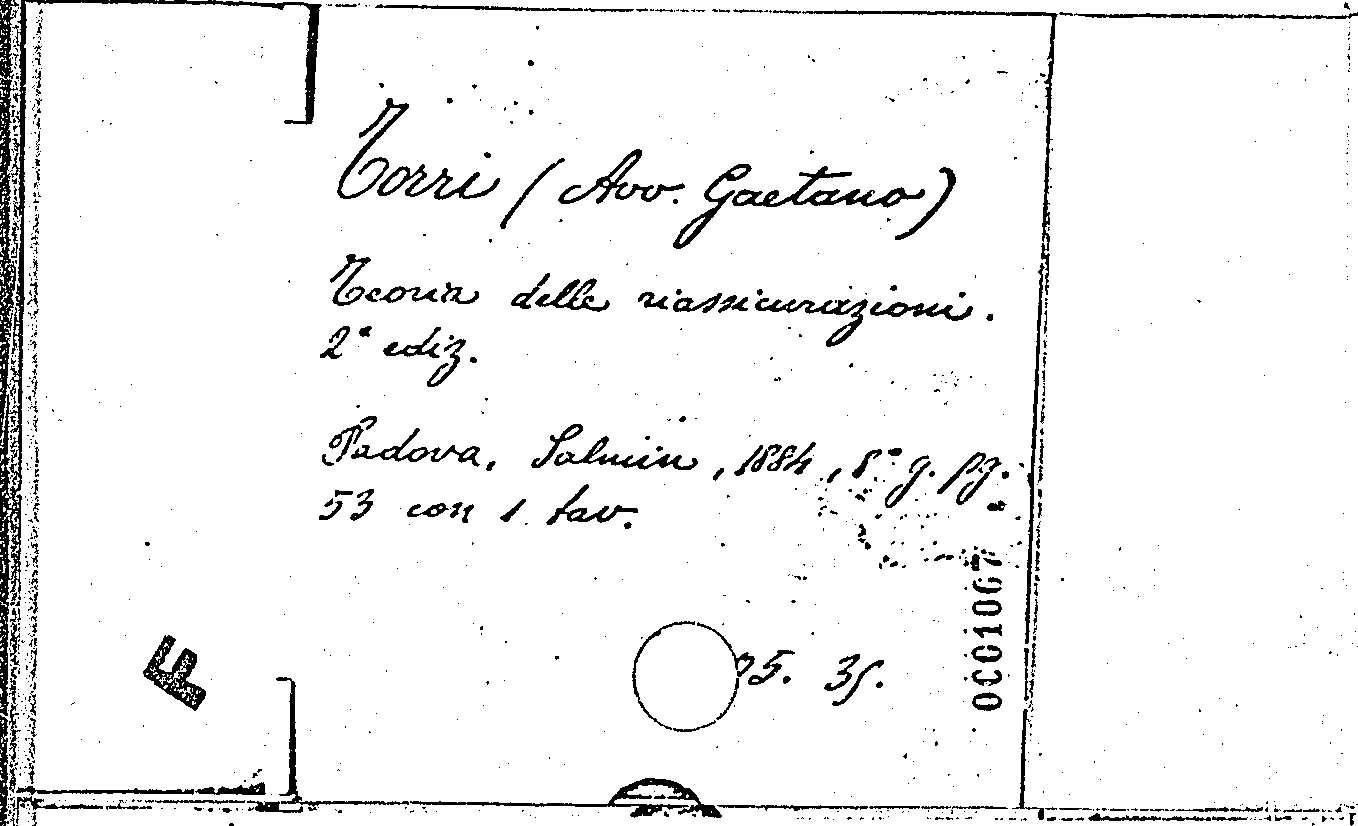 Torri (Avv. Gaetano)
Teoria delle riassicurazioni.
2ª ediz.
Padova, Salmin, 1884, 8° g. pg.
53 con 1 tav.
75. 35.
0001067
F